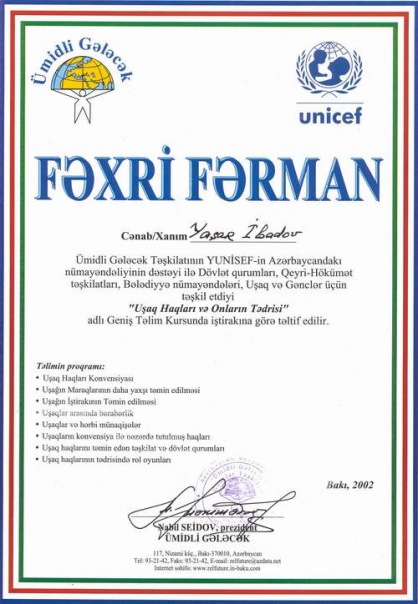 Ümidli Gələcək
unicef
FƏXRİ FƏRMAN
Cənab/Xanım Yaşar İbadov
Ümidli Gələcək Təşkilatının YUNİSEF-in Azərbaycandakı
nümayəndəliyinin dəstəyi ilə Dövlət qurumları, Qeyri-Hökümət
təşkilatları, Bələdiyyə nümayəndələri, Uşaq və Gənclər üçün
təşkil etdiyi
"Uşaq Haqları və Onların Tədrisi"
adlı Geniş Təlim Kursunda iştirakına görə təltif edilir.
Təlimin proqramı:
• Uşaq Haqları Konvensiyası
• Uşağın Maraqlarının daha yaxşı təmin edilməsi
• Uşağın İştirakının Təmin edilməsi
• Uşaqlar arasında bərabərlik
• Uşaqlar və hərbi münaqişələr
• Uşaqların konvensiya ilə nəzərdə tutulmuş haqları
• Uşaq haqlarını təmin edən təşkilat və dövlət qurumları
• Uşaq haqlarının tədrisində rol oyunları
Bakı, 2002
Nabil SEİDOV, prezident
ÜMİDLİ GƏLƏCƏK
117, Nizami küç., Bakı-370010, Azərbaycan
Tel: 93-21-42, Faks: 93-21-42, E-mail: relfuture@azdata.net
Internet səhifə: www.relfuture.in-baku.com